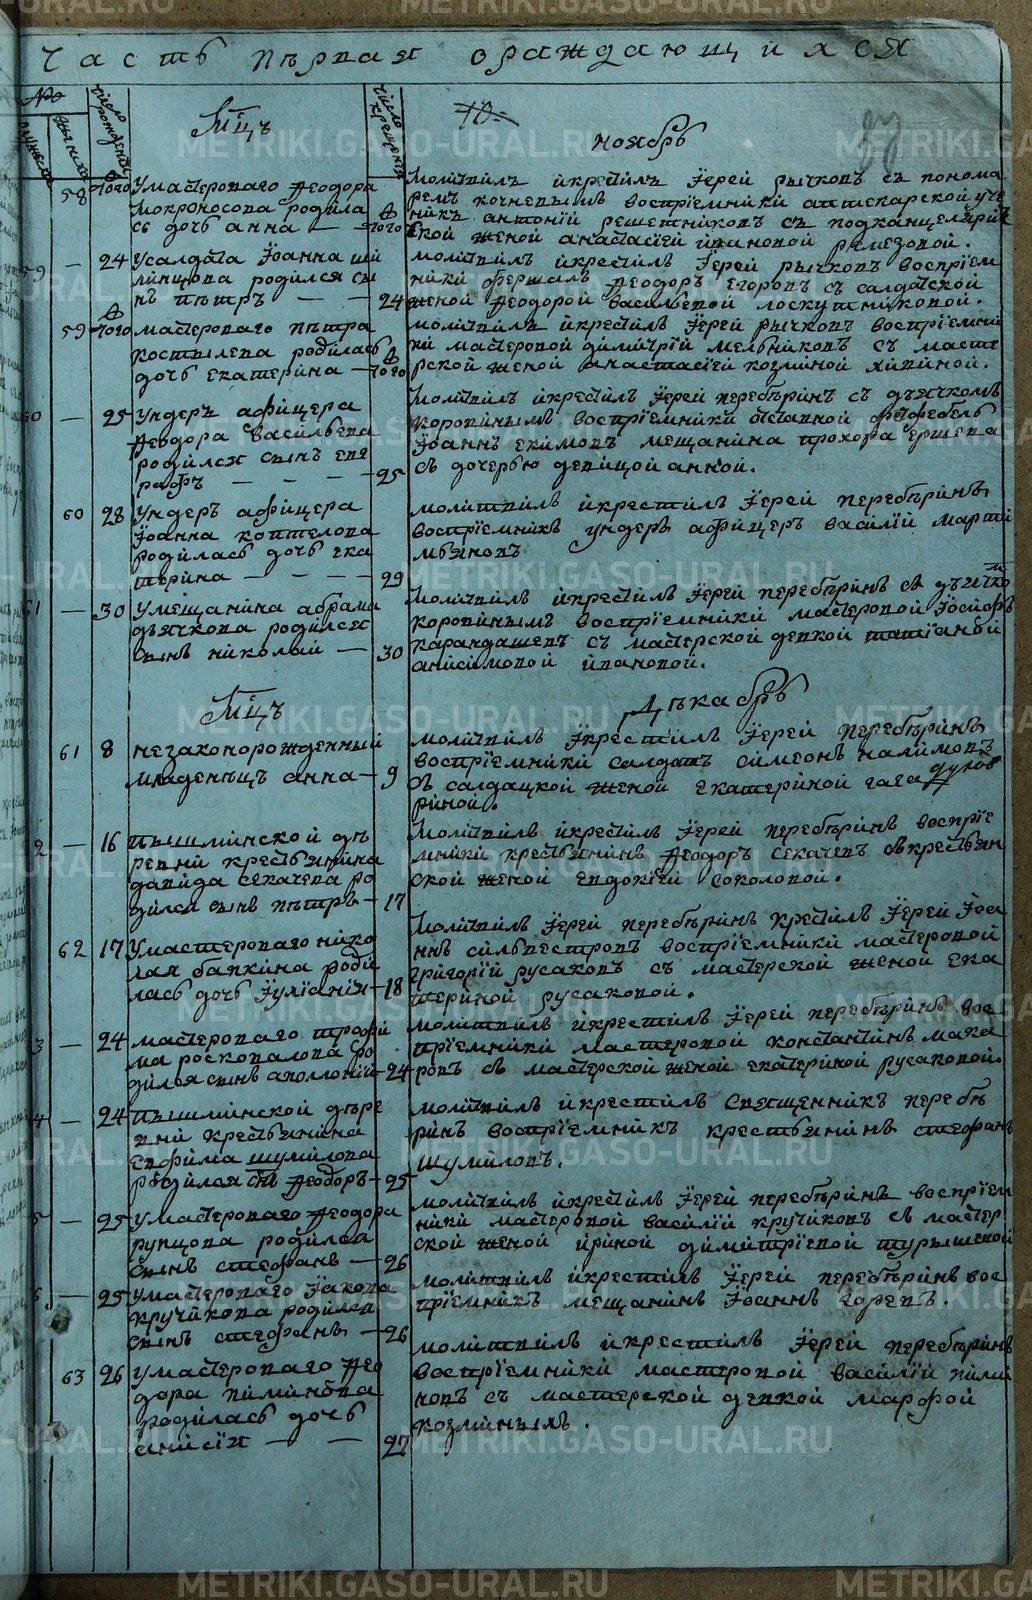 Часть първая о раждающихся
№
мужеска
женска
число рождения
Мцъ
число крещения
10
ноябрь
58 того Умастероваго Ѳеодора
Мокроносова родила
сь дочь анна — того
Молитвилъ икрестилъ Iерей рычковъ съ понома
ремъ кочневымъ восприемники аптекарской уче
никъ антонiй решетниковъ съ подканцеляри
ской женой анастасiей ивановой ремезовой.
59 — 24 Усалдата Iоанна
родился сы
нъ пътръ — — 24
молитвилъ икрестилъ Iерей рычковъ восприем
ники фершалъ Ѳеодоръ Егоровъ съ салдатской
женой Ѳеодорой васильевой лоскутниковой.
59 того мастероваго пътра
костылева родилась
дочь екатерина — того
молитвилъ икрестилъ Iерей рычковъ восприемни
ки мастеровой димитрiй мельниковъ съ масте
рской женой анастасiей козминой
60 — 25 ундеръ афицера
Ѳеодора васильева
родился сынъ епг
рафъ — — — 25
Молитвилъ икрестилъ Iерей перебъринъ съ дьячкомъ
коровинымъ восприемники отставной фетфебель
Iоаннъ екимовъ мещанина прохора ершева
съ дочерью девицой анной.
60 28 ундеръ афицера
Iоанна коптелова
родилась дочь ека
терина — — — 29
молитвилъ икрестилъ Iерей перебъринъ
восприемникъ ундеръ афицеръ василiй марти
мьяновъ
61 — 30 умещанина абрама
дьячкова родился
сынъ николай — 30
Молитвилъ икрестилъ Iерей перебъринъ съ дьячко
коровинымъ восприемники мастеровой Iосифъ
карандашевъ съ мастерской девкой татiаной
анисимовой ивановой.
Мцъ
Дъкабрь
61 8 незаконорожденный
младенъцъ анна — 9
молитвилъ Iкрестилъ Iерей перебъринъ
восприемники салдатъ симеонъ налимовъ
съ салдацкой женой екатериной гага
риной.
2 — 16 пышминской дъ
ревни крестьянина
давида секачева ро
дился сынъ пътръ — 17
Молитвилъ икрестилъ Iерей перебъринъ восприе
мники крестьянинъ Ѳеодоръ секачевъ съкрестьян
ской женой евдокiей соколовой.
62 17 Умастероваго нико
лая бапкина роди
лась дочь Iулiанiя — 18
Молитвилъ Iерей перебъринъ крестилъ Iерей Iоа
ннъ сильвестровъ восприемники мастеровой
григорiй русаковъ съ мастерской женой ека
териной русаковой.
3 — 24 мастероваго трофи
ма росковалова ро
дился сынъ аполлонiй — 24
молитвилъ икрестилъ Iерей перебъринъ вос
приемники мастеровой константинъ мака
ровъ съ мастерской женой екатериной русаковой.
4 — 24 пышминской дъре
вни крестьянина
ефима шумилова
родился снъ Ѳеодоръ — 25
молитвилъ икрестилъ священникъ перебъ
ринъ восприемникъ крестьянинъ стефанъ
шумиловъ.
5 — 25 Умастероваго Ѳеодора
рупцова родился
сынъ стефанъ — 26
молитвилъ икрестилъ Iерей перебъринъ восприем
ники мастеровой василiй кручиковъ съ мастер
ской женой ириной димитрiевой турышевой
6 — 25 умастероваго Iакова
кручикова родился
сынъ стефанъ — 26
молитвилъ икрестилъ Iерей перебъринъ вос
приемникъ мещанинъ Iоаннъ горевъ.
63 26 умастероваго Ѳео
дора пиминова
родилась дочь
анисiя — — 27
молитвилъ икрестилъ Iерей перебъринъ
восприемники мастровой василiй пими
новъ съ мастерской девкой марфой
козминыхъ.
METRIKI.GASO-URAL.RU